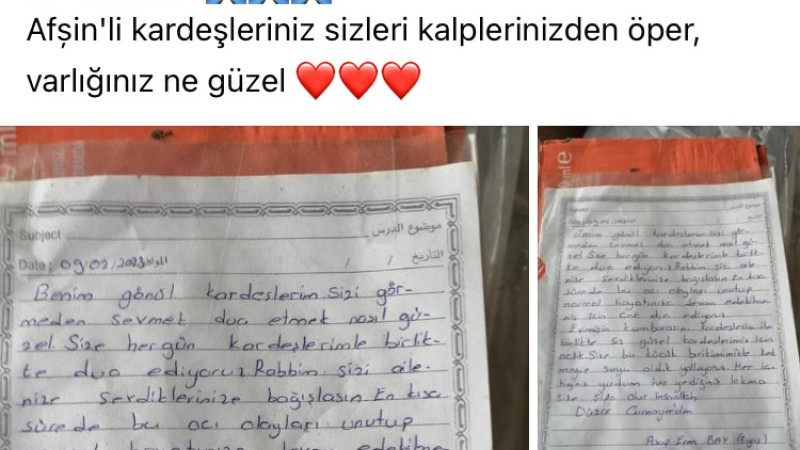 Afşin'li kardeşleriniz sizleri kalplerinizden öper,
varlığınız ne güzel ❤️❤️❤️
Subject موضوع الدرس
Date: 09/02/2023 الموافق / / التاريخ
Benim gönül kardeşlerim sizi gör-
meden sevmet dua etmek nasıl gü-
zel. Size hergün kardeşlerimle birlik-
te dua ediyoruz. Rabbim sizi aile-
nize serdiklerinize bağışlasın. En kısa
sürede bu acı olayları unutup
Benim gönül kardeşlerim sizi gör-
meden sevmet dua etmek nasıl gü-
zel. Size hergün kardeşlerimle birlik-
te dua ediyoruz. Rabbim sizi aile-
nize serdiklerinize bağışlasın. En kısa
sürede bu acı olayları unutup
normal hayatınıza devam edebilme-
niz için çok dua ediyoruz
kumbarasını kardeşlerim ile
birlikte siz güzel kardeşlerimiz için
açtık. Size bu küçük birikimimizle
yolluyoruz. Her
her yediğiniz lokma
size şifa olur inşallah,
Düzce Cumayeri'nden